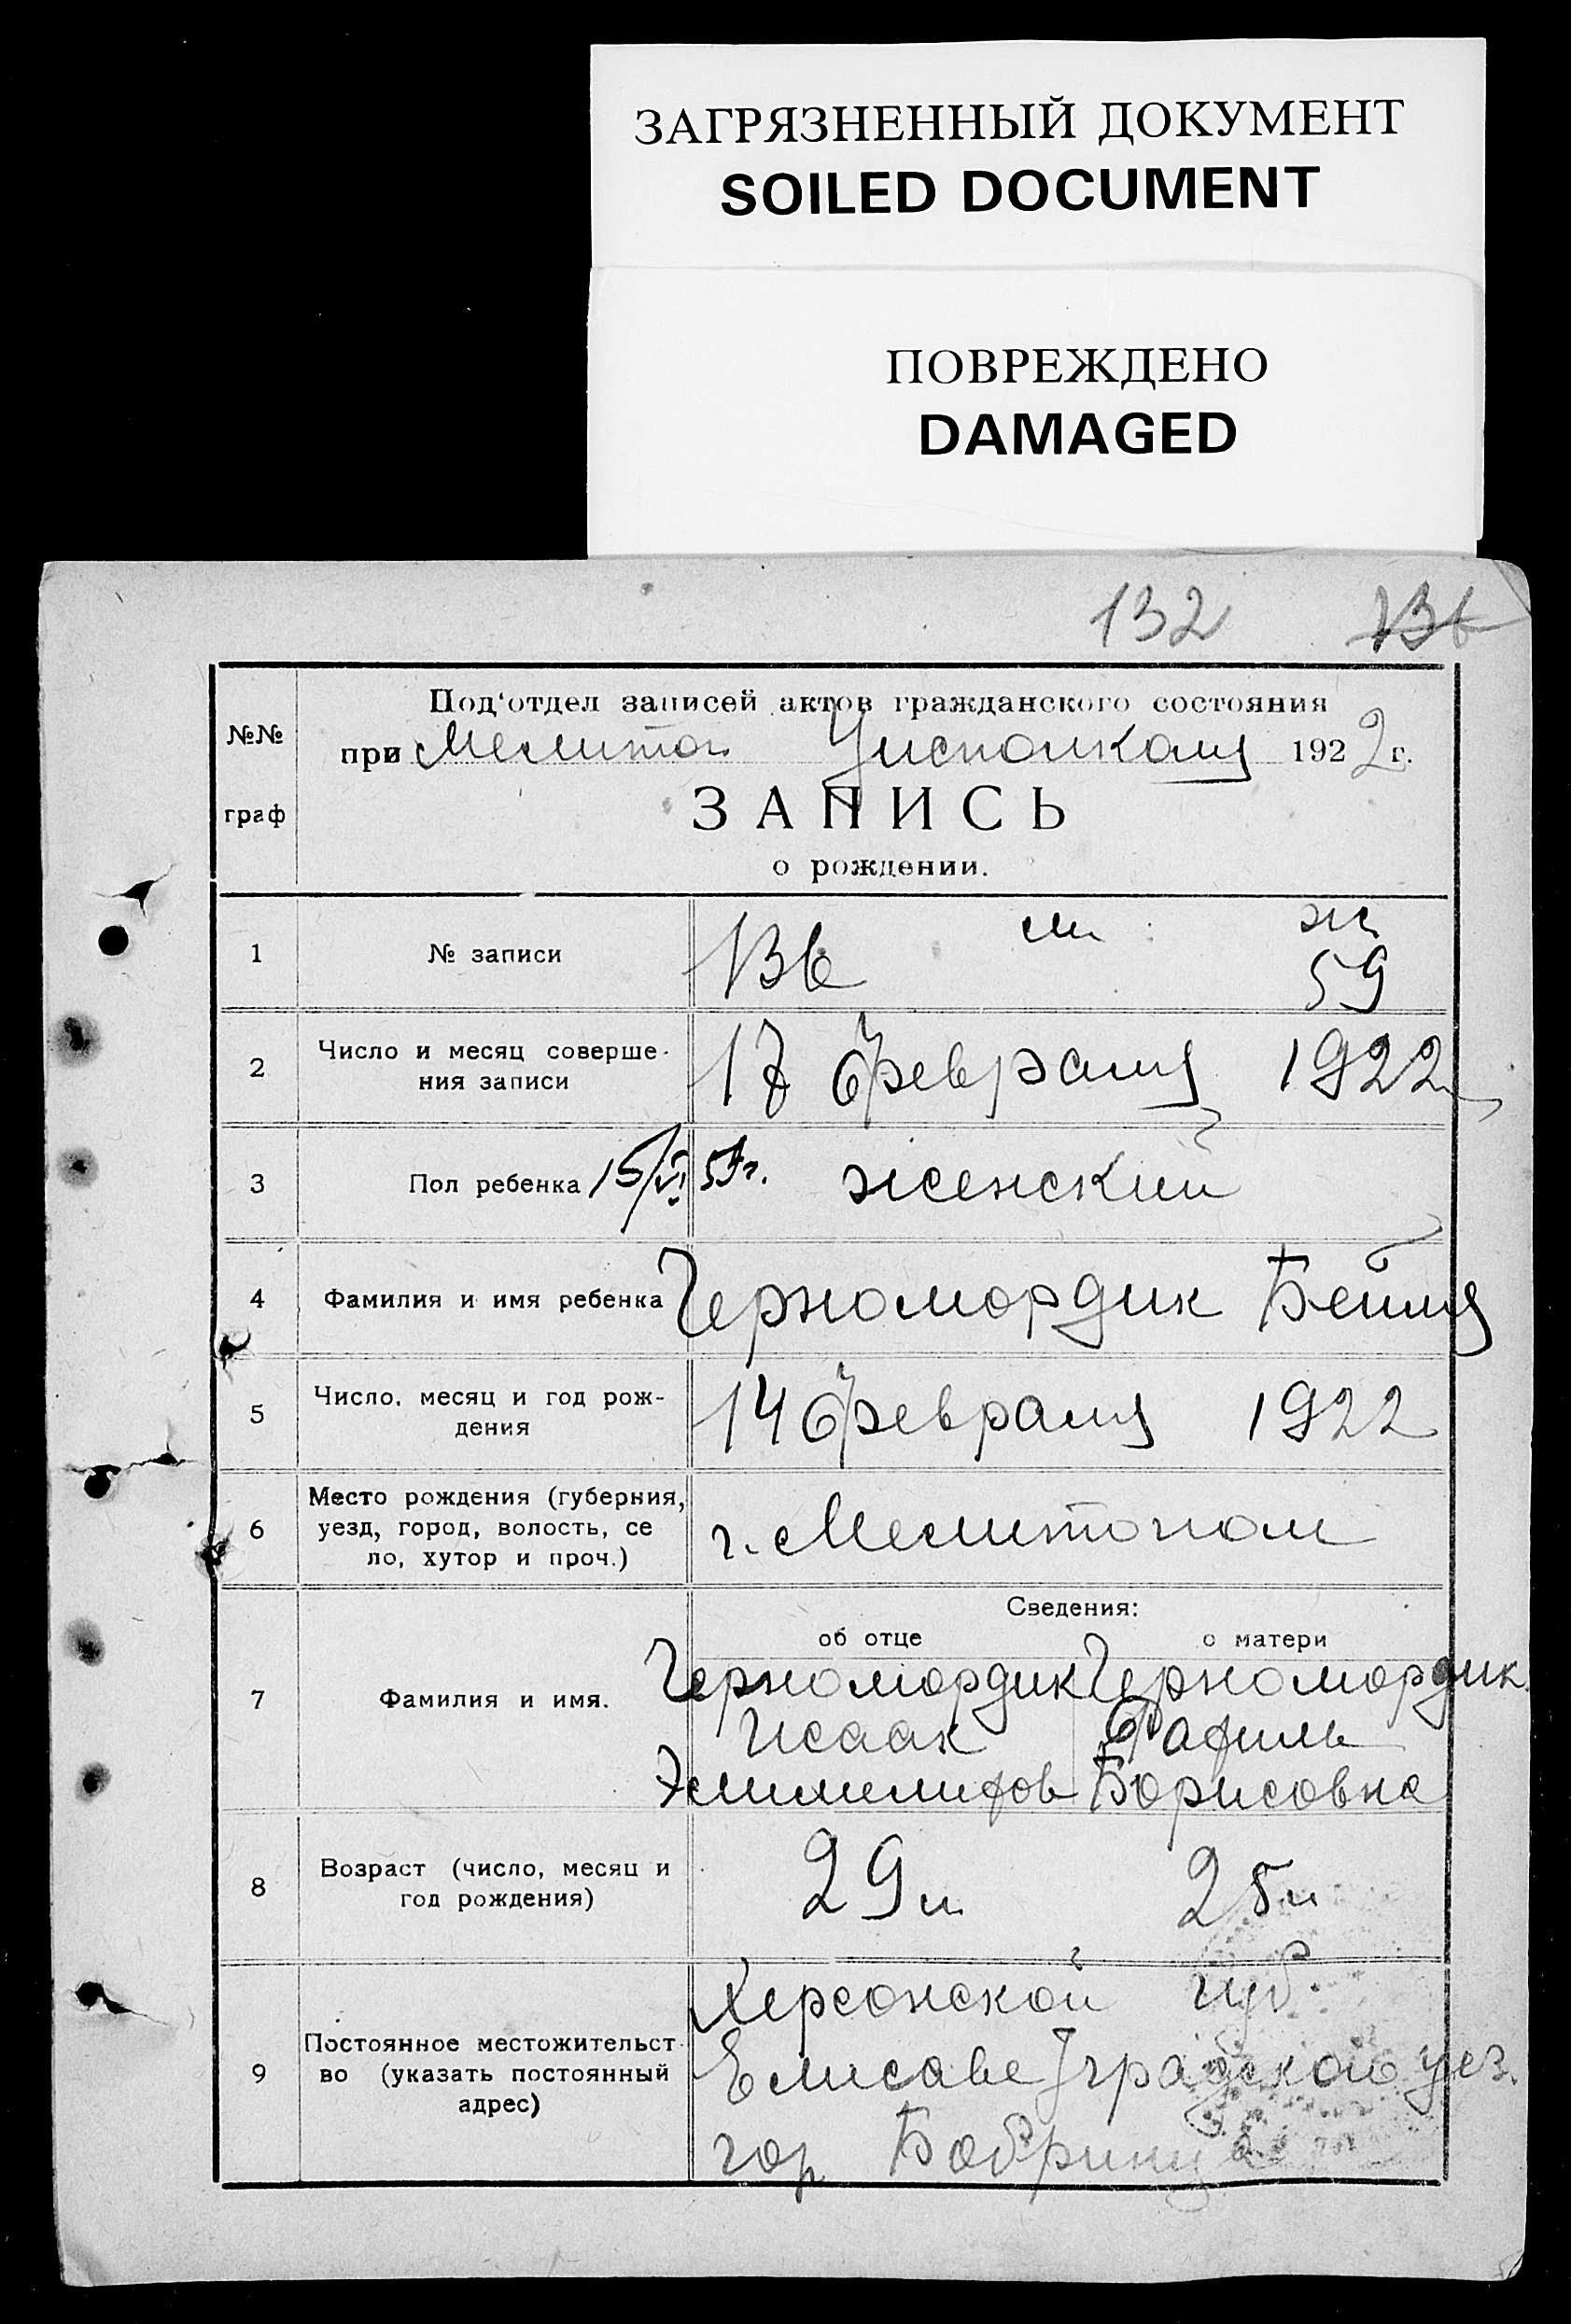 ЗАГРЯЗНЕННЫЙ ДОКУМЕНТ
SOILED DOCUMENT
ПОВРЕЖДЕНО
DAMAGED
132 136
№№ граф
Под'отдел записей актов гражданского состояния
при Мелитоп Уисполкома 1922 г.
ЗАПИСЬ
о рождении.
м ж
1 № записи 136 59
2 Число и месяц соверше-
ния записи 17 Февраля 1922
3 Пол ребенка 15/VI 57г. женский
4 Фамилия и имя ребенка Черномордик Бейля
5 Число, месяц и год рож-
дения 14 Февраля 1922
6 Место рождения (губерния,
уезд, город, волость, се
ло, хутор и проч.) г. Мелитополь
Сведения:
об отце о матери
7 Фамилия и имя. Черномордик Черномордик
Исаак
Борисовна
8 Возраст (число, месяц и
год рождения) 29 л 25 л
9 Постоянное местожительст-
во (указать постоянный
адрес)
Херсонской губ.
Елисаветградской уез.
гор Бобринц